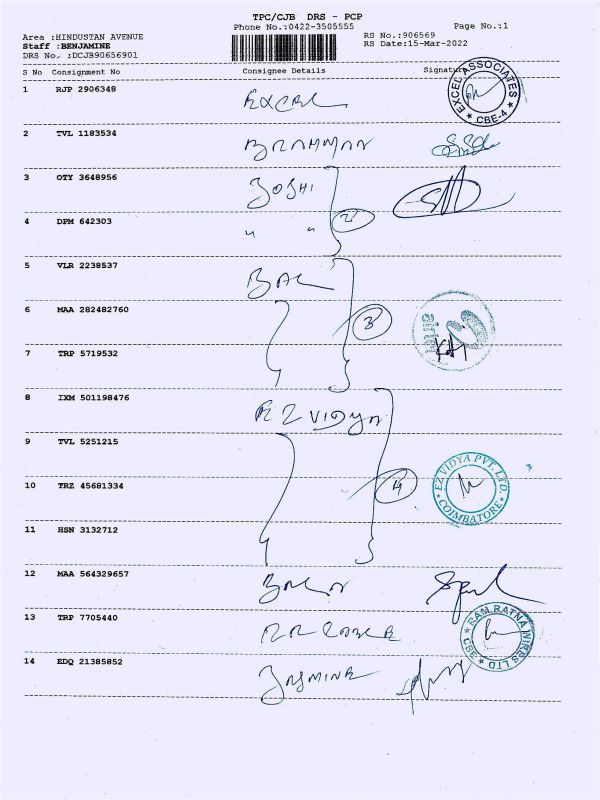 TPC/CJB DRS - PCP
Phone No.:0422-3505555 Page No.:1
Area :HINDUSTAN AVENUE RS No.:906569
Staff :BENJAMINE RS Date:15-Mar-2022
DRS No. :DCJB90656901
S No Consignment No Consignee Details Signature
1 RJP 2906348 EXCEL
EXCEL ASSOCIATES ★ CBE-4 ★
2 TVL 1183534 BRAHMAN
3 OTY 3648956 JOSHI
4 DPM 642303 " "
2
5 VLR 2238537 BAL
6 MAA 282482760
3
airtel
7 TRP 5719532
8 IXM 501198476 EZ VIDYA
9 TVL 5251215
10 TRZ 45681334
4
EZ VIDYA PVT. LTD. ★ COIMBATORE ★
11 HSN 3132712
12 MAA 564329657
13 TRP 7705440
RAM RATNA WIRES LTD ★ CBE ★
14 EDQ 21385852 JASMINE